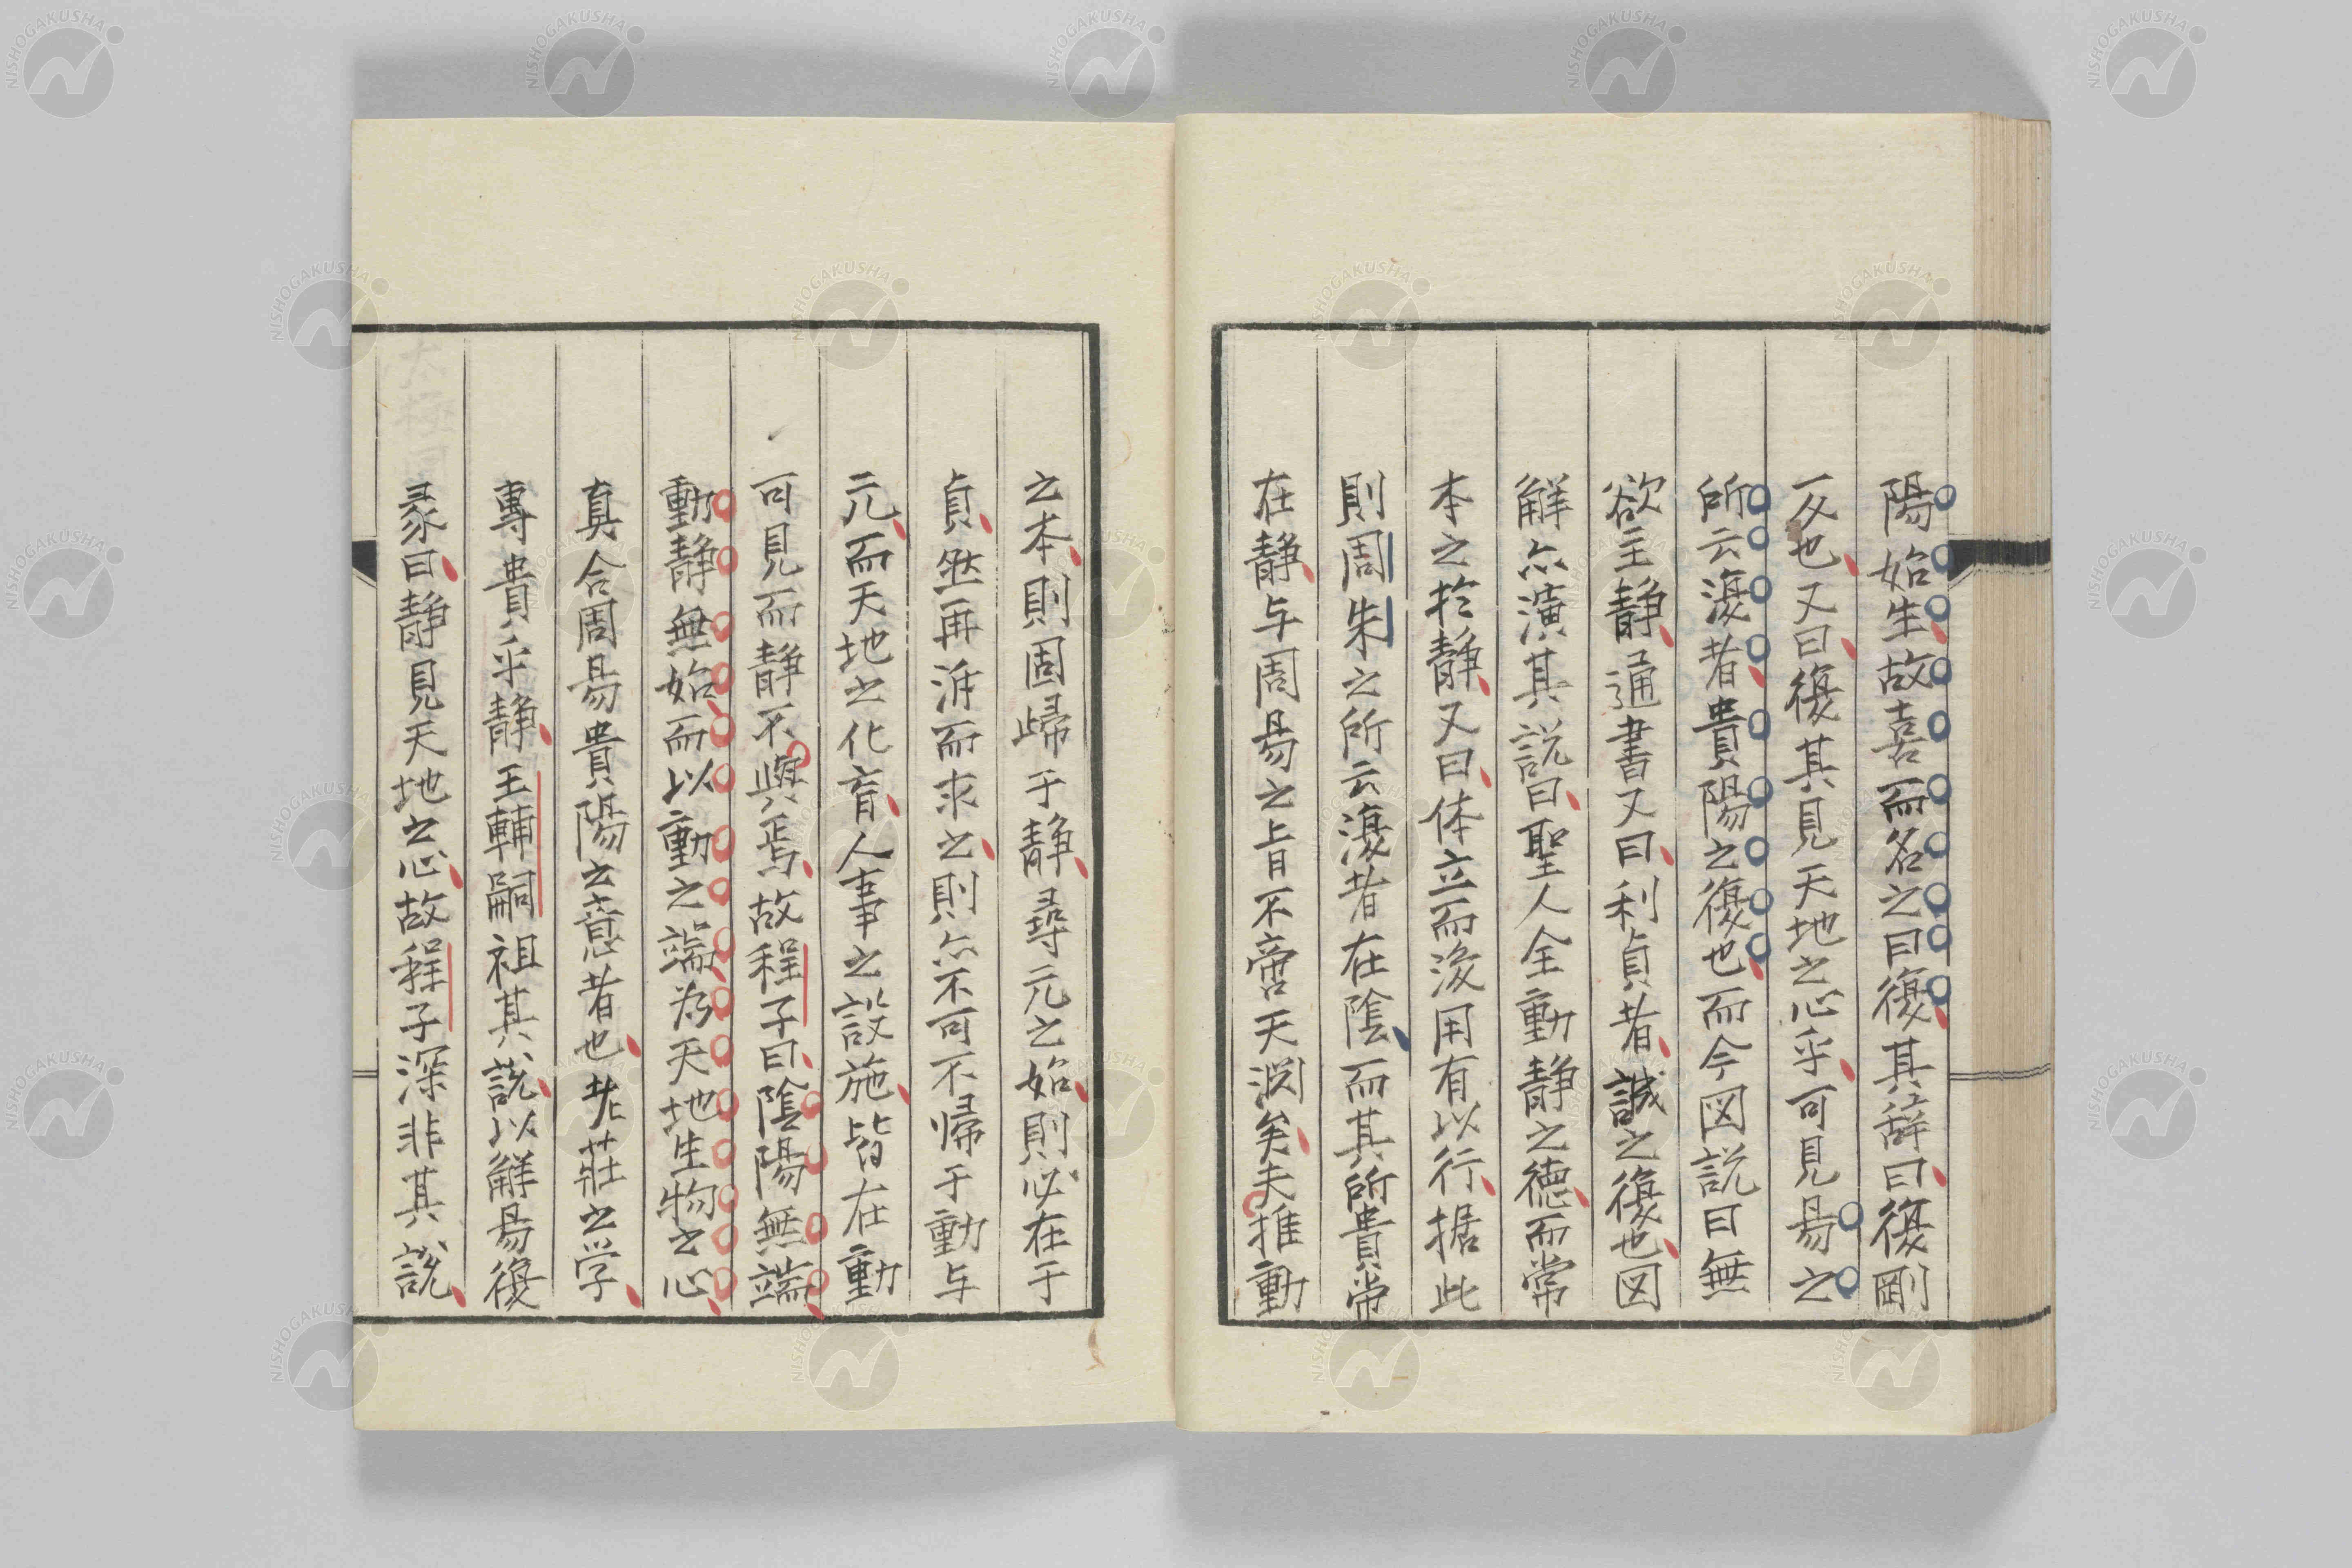 陽始生故喜而名之曰復其辞曰復剛
反也又曰復其見天地之心乎可見易之
所云復者貴陽之復也而今図説曰無
欲主静通書又曰利貞者誠之復也図
解亦演其説曰聖人全動静之徳而常
本之於静又曰体立而後用有以行据此
則周朱之所云復者在陰而其所貴常
在静与周易之旨不啻天淵矣夫推動
之本則固歸于静尋元之始則必在于
貞然再泝而求之則亦不可不帰于動与
元而天地之化育人事之設施皆在動
可見而静不與焉故程子曰陰陽無端
動静無始而以動之端為天地生物之心
真合周易貴陽之意者也老莊之学
專貴乎静王輔嗣祖其説以解易復
彖曰静見天地之心故程子深非其説
NISHOGAKUSHA